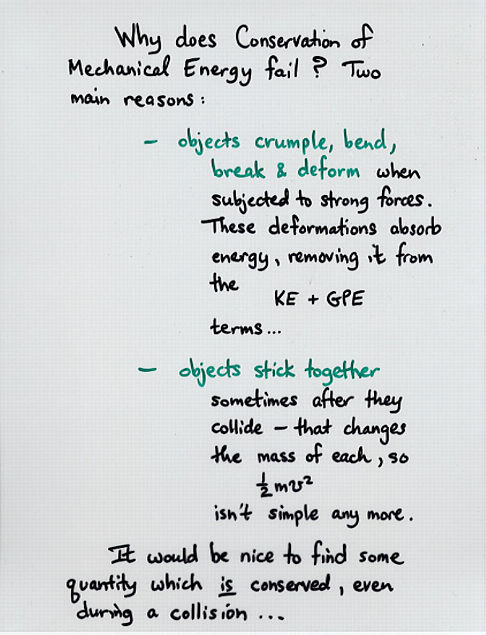 Why does Conservation of
Mechanical Energy fail? Two
main reasons:
- objects crumple, bend,
break & deform when
subjected to strong forces.
These deformations absorb
energy, removing it from
the
KE + GPE
terms...
- objects stick together
sometimes after they
collide - that changes
the mass of each, so
½mv²
isn't simple any more.
It would be nice to find some
quantity which is conserved, even
during a collision ...